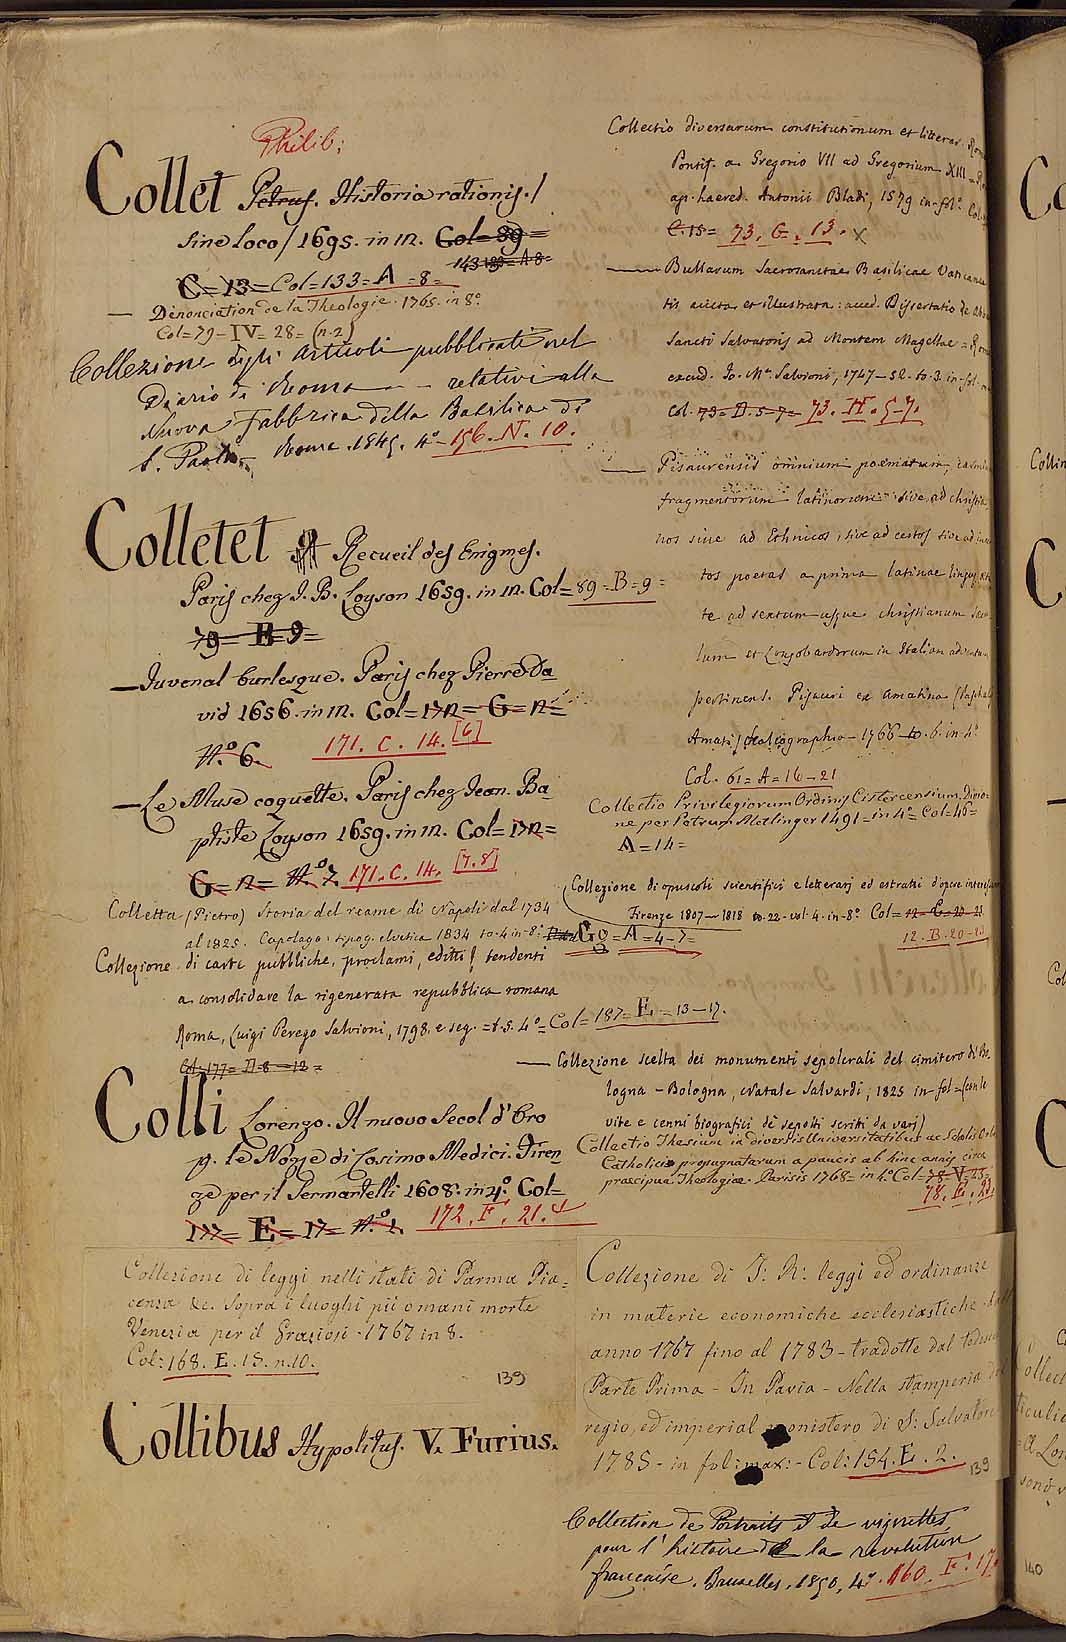 Philib;
Collet Petrus. Historia rationis./
sine loco/1695. in 12. Col=89=
143 133=A 8=
C=13=Col=133=A=8=
— Dénonciation de la Theologie. 1765. in 8°
Col=79=IV=28=(n.2)
Collezione degli Articoli pubblicati nel
Diario di Roma — relativi alla
Nuova Fabbrica della Basilica di
S. Paolo, Roma. 1845. 4° 156. N. 10.
Colletet Recueil des Enigmes.
Paris chez J. B. Loyson 1659. in 12. Col=89=B=9=
79=E=9=
—Juvenal burlesque. Paris chez Pierre Da
vid 1656. in 12. Col=172=G=12=
N.° 6. 171. C. 14. [6]
—Le Muse coquette. Paris chez Jean. Ba
ptiste Loyson 1659. in 12. Col=172=
G=12=N.° 7. 171. C. 14. [7.8]
Colletta (Pietro) Storia del reame di Napoli dal 1734
al 1825. Capolago: tipog. elvetica 1834 to. 4 in-8° Gg=A=4-7=
Collezione di carte pubbliche, proclami, editti/ tendenti
a consolidare la rigenerata repubblica romana
Roma, Luigi Perego Salvioni, 1798. e seg. =t. 5. 4°=Col=187=E=13-17.
Col=177=D=8=12=
Colli Lorenzo. Il nuovo Secol d'Oro
p. le Nozze di Cosimo Medici. Firen
ze per il Sermartelli 1608. in 4°. Col=
177=E=17=N.° 1. 172. F. 21.
Collezione di leggi nelli stati di Parma Pia=
cenza &c. Sopra i luoghi pii o mani morte
Venezia per il Graziosi - 1767 in 8.
Col: 168. E. 15. n. 10.
139
Collibus Hypolitus. V. Furius.
Collectio diversarum constitutionum et litterar. Rom
Pontif. a Gregorio VII ad Gregorium XIII = R
ap. haered. Antonii Bladi, 1579 in-fol.° Col.
C. 15= 73. G. 13. X
— Bullarum Sacrosanctae Basilicae Vatican
tis aucta et illustrata: acced. Dissertatio de Abb
Sancti Salvatoris ad Montem Magellae = Rom
excud. Jo. M.a Salvioni, 1747-52. to. 3. in-fol.
Col. 73=D. 5-7= 73. H. 5-7.
— Pisaurensis omnium poematum, carmi
fragmentorum latinorum sive ad christia
nos sive ad Ethnicos, sive ad certos sive ad in
tos poetas a prima latinae linguae
te ad sextum usque christianum saec
lum et Longobardorum in Italiam advent
pertinent. Pisauri ex Amatina
Amati/ Chalcographia - 1766 to. 6. in 4°
Col. 61=A=16-21
Collectio Privilegiorum Ordinis Cistercensium. Divio
ne per Petrum Metlinger 1491=in 4°= Col=46=
A=14=
Collezione di opuscoli scientifici e letterarj ed estratti d'opere interess
Firenze 1807-1818 to. 22-vol. 4. in-8° Col=12=C=20-21
12. B. 20-23
— Collezione scelta dei monumenti sepolcrali del cimitero di Bo
logna - Bologna, Natale Salvardi, 1825 in-fol=(con le
vite e cenni biografici de' sepolti scritti da varj)
Collectio Thesium in diversis Universitatibus ac Scholis Orbis
Catholici propugnatarum a paucis ab hinc annis circa
praecipua Theologiae. Parisis 1768=in 4.° Col=78=V=23=
78. E. 21.
Collezione di I: R: leggi ed ordinanze
in materie economiche ecclesiastiche dall
anno 1767 fino al 1783 - tradotte dal tedesco
Parte Prima - In Pavia - Nella stamperia del
regio, ed imperial monistero di S: Salvatore
1785 - in fol: max: - Col: 154. E. 2.
139
Collection de Portraits et de vignettes
pour l'histoire de la révolution
française. Bruxelles, 1850, 4°. 160. F. 17.
140